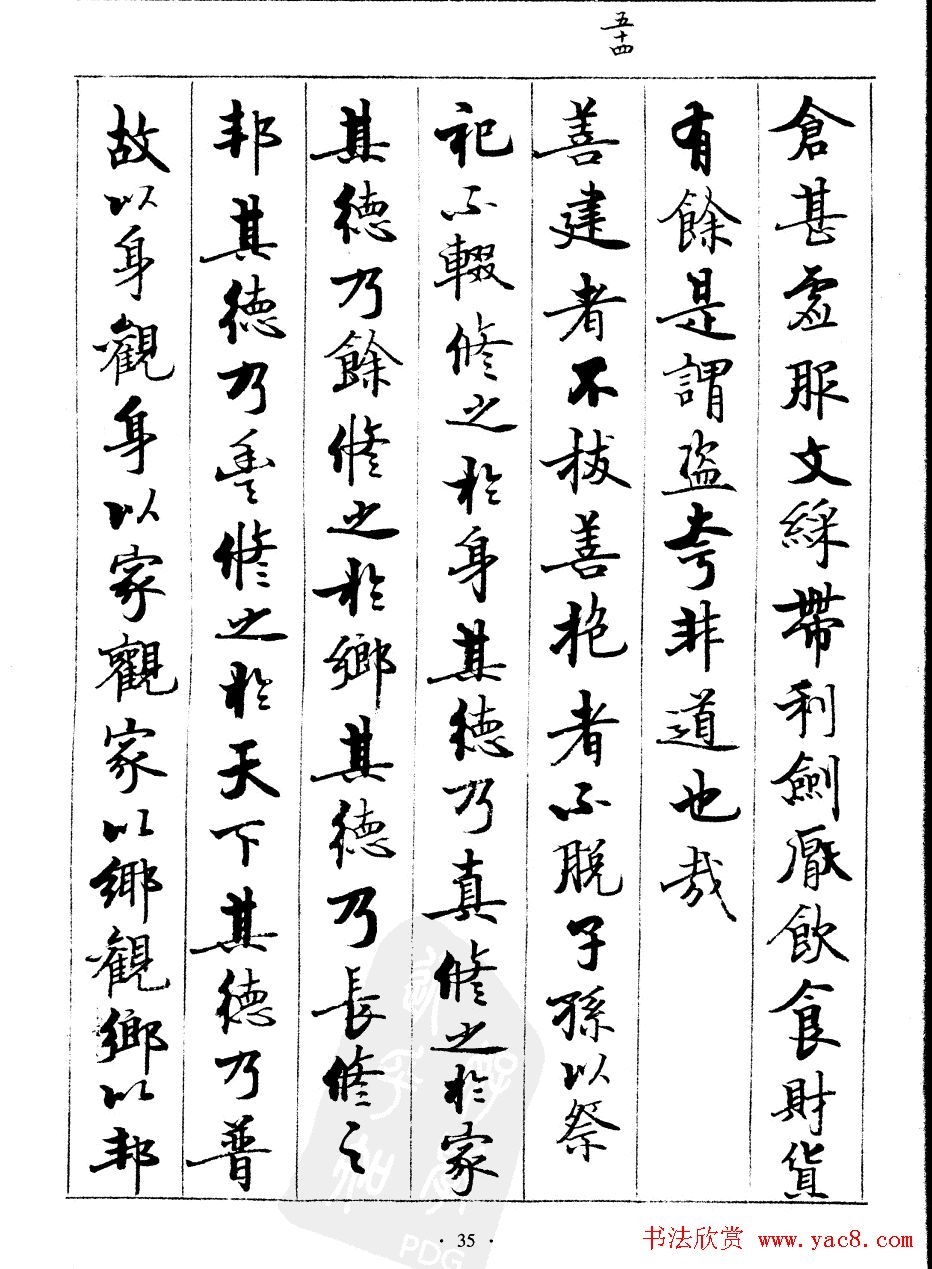 五十四
倉甚虛服文綵帶利劍厭飲食財貨
有餘是謂盜夸非道也哉
善建者不拔善抱者不脫子孫以祭
祀不輟修之於身其德乃真修之於家
其德乃餘修之於鄉其德乃長修之
邦其德乃豐修之於天下其德乃普
故以身觀身以家觀家以鄉觀鄉以邦
· 35 ·
PDG
书法欣赏 www.yac8.com